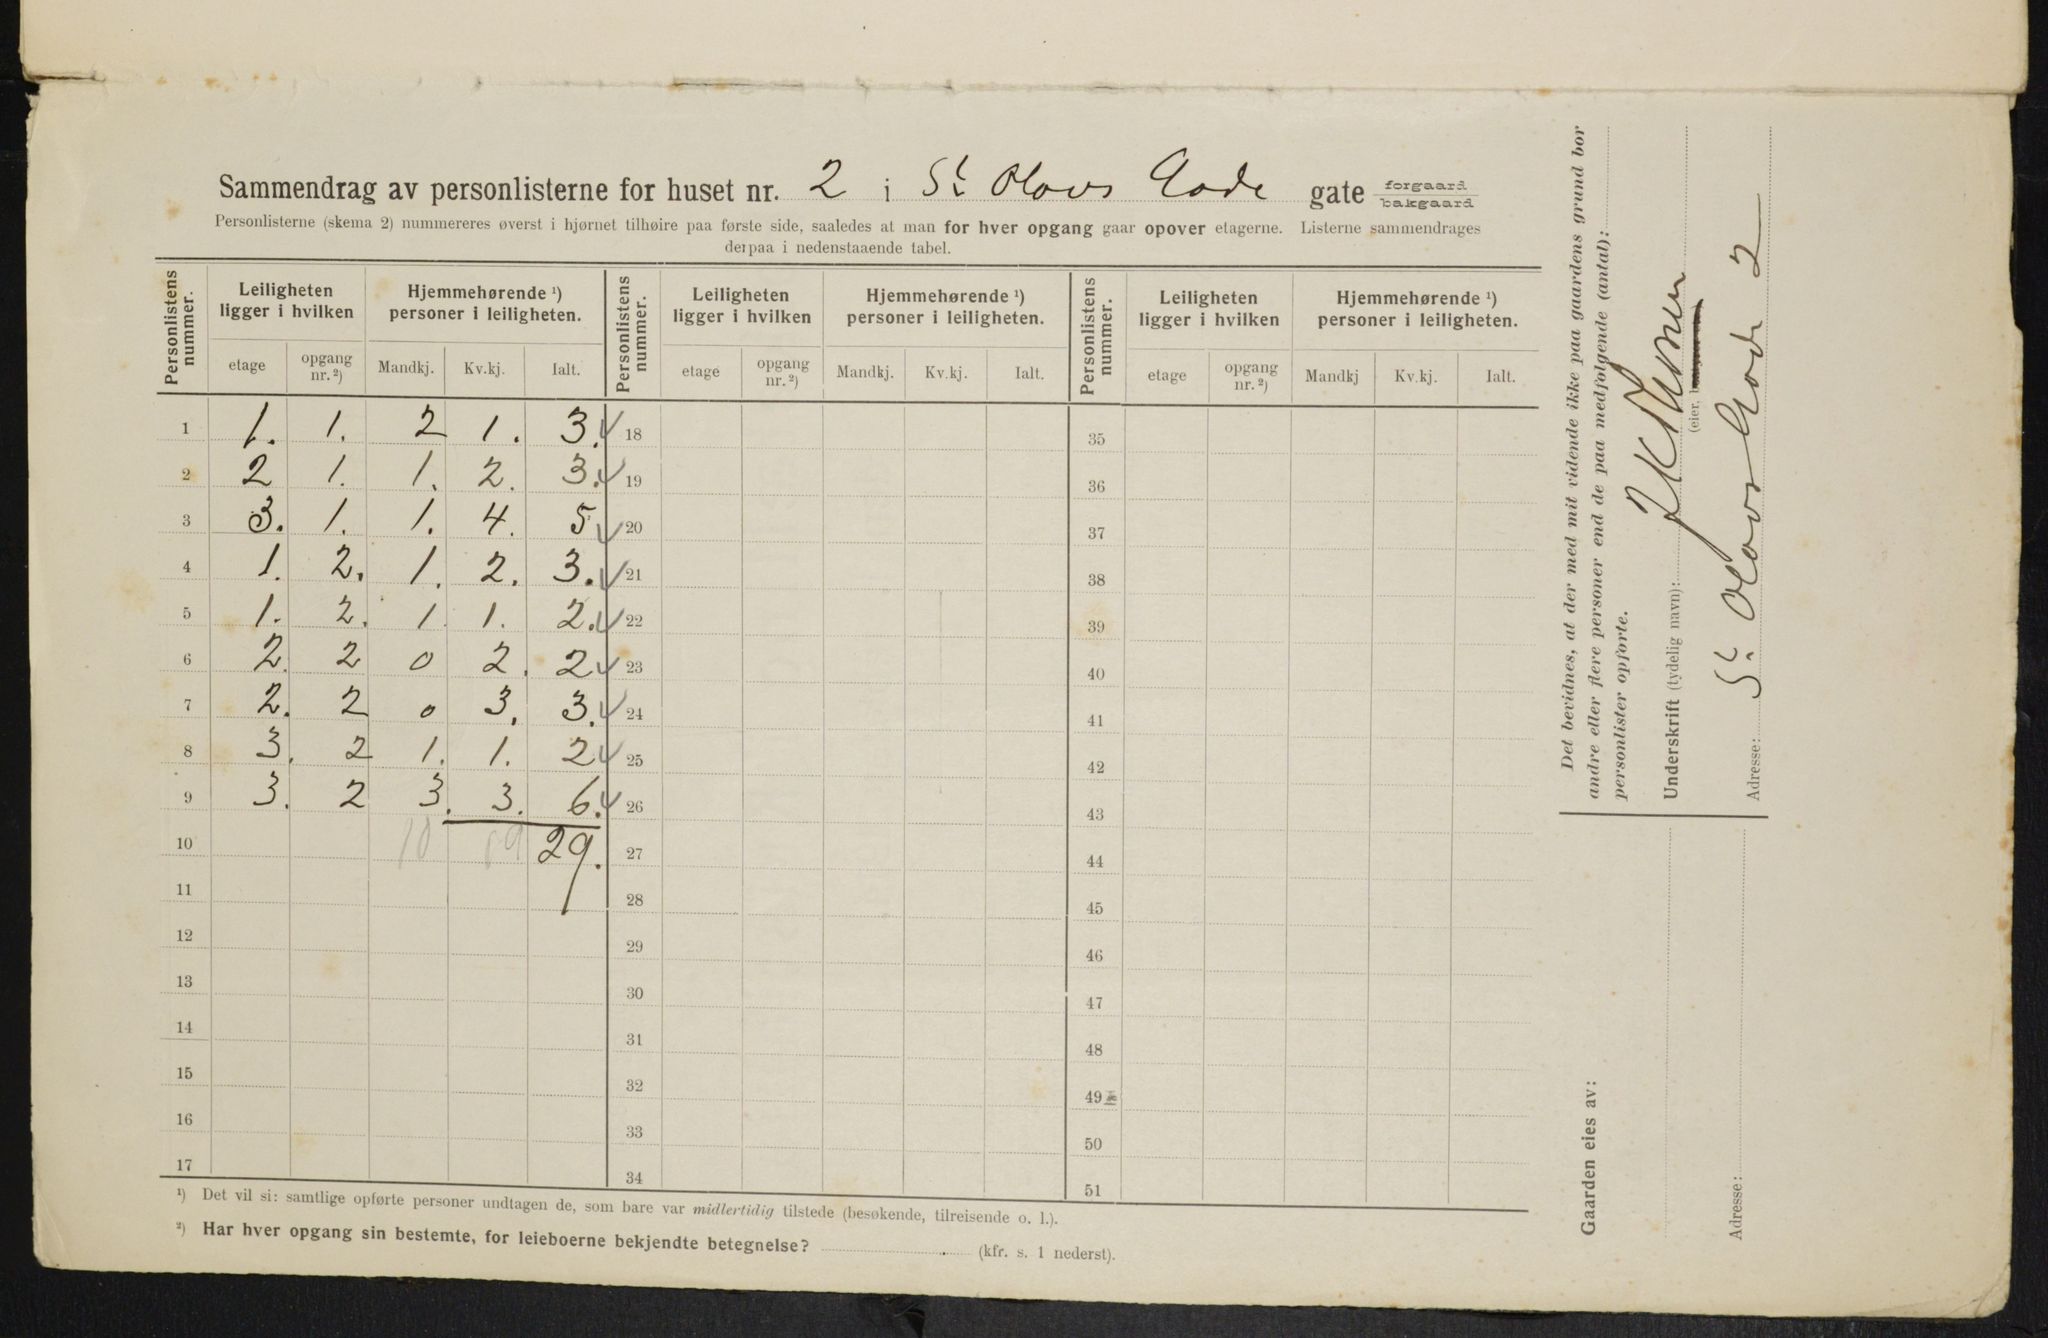 Sammendrag av personlisterne for huset nr. 2 i St. Olavs Gade gate forgaard bakgaard
Personlisterne (skema 2) nummereres øverst i hjørnet tilhøire paa første side, saaledes at man for hver opgang gaar opover etagerne. Listerne sammendrages
derpaa i nedenstaaende tabel.
Personlistens nummer. Leiligheten ligger i hvilken Hjemmehørende ¹) personer i leiligheten. Personlistens nummer. Leiligheten ligger i hvilken Hjemmehørende ¹) personer i leiligheten. Personlistens nummer. Leiligheten ligger i hvilken Hjemmehørende ¹) personer i leiligheten.
etage opgang nr.²) Mandkj. Kv.kj. Ialt. etage opgang nr.²) Mandkj. Kv.kj. Ialt. etage opgang nr.²) Mandkj Kv.kj. Ialt.
1 1. 1. 2 1. 3. 18 35
2 2 1. 1. 2. 3. 19 36
3 3. 1. 1. 4. 5 20 37
4 1. 2. 1. 2. 3. 21 38
5 1. 2. 1. 1. 2. 22 39
6 2. 2 0 2. 2 23 40
7 2. 2 0 3. 3. 24 41
8 3. 2 1. 1. 2 25 42
9 3. 2 3. 3. 6. 26 43
10 10 19 29. 27 44
11 28 45
12 29 46
13 30 47
14 31 48
15 32 49
16 33 50
17 34 51
¹) Det vil si: samtlige opførte personer undtagen de, som bare var midlertidig tilstede (besøkende, tilreisende o. l.).
²) Har hver opgang sin bestemte, for leieboerne bekjendte betegnelse? (kfr. s. 1 nederst).
Det bevidnes, at der med mit vidende ikke paa gaardens grund bor
andre eller flere personer end de paa medfølgende (antal):
personlister opførte.
Underskrift (tydelig navn):
(eier,
Adresse: St. Olavs Gade 2
Gaarden eies av:
Adresse: